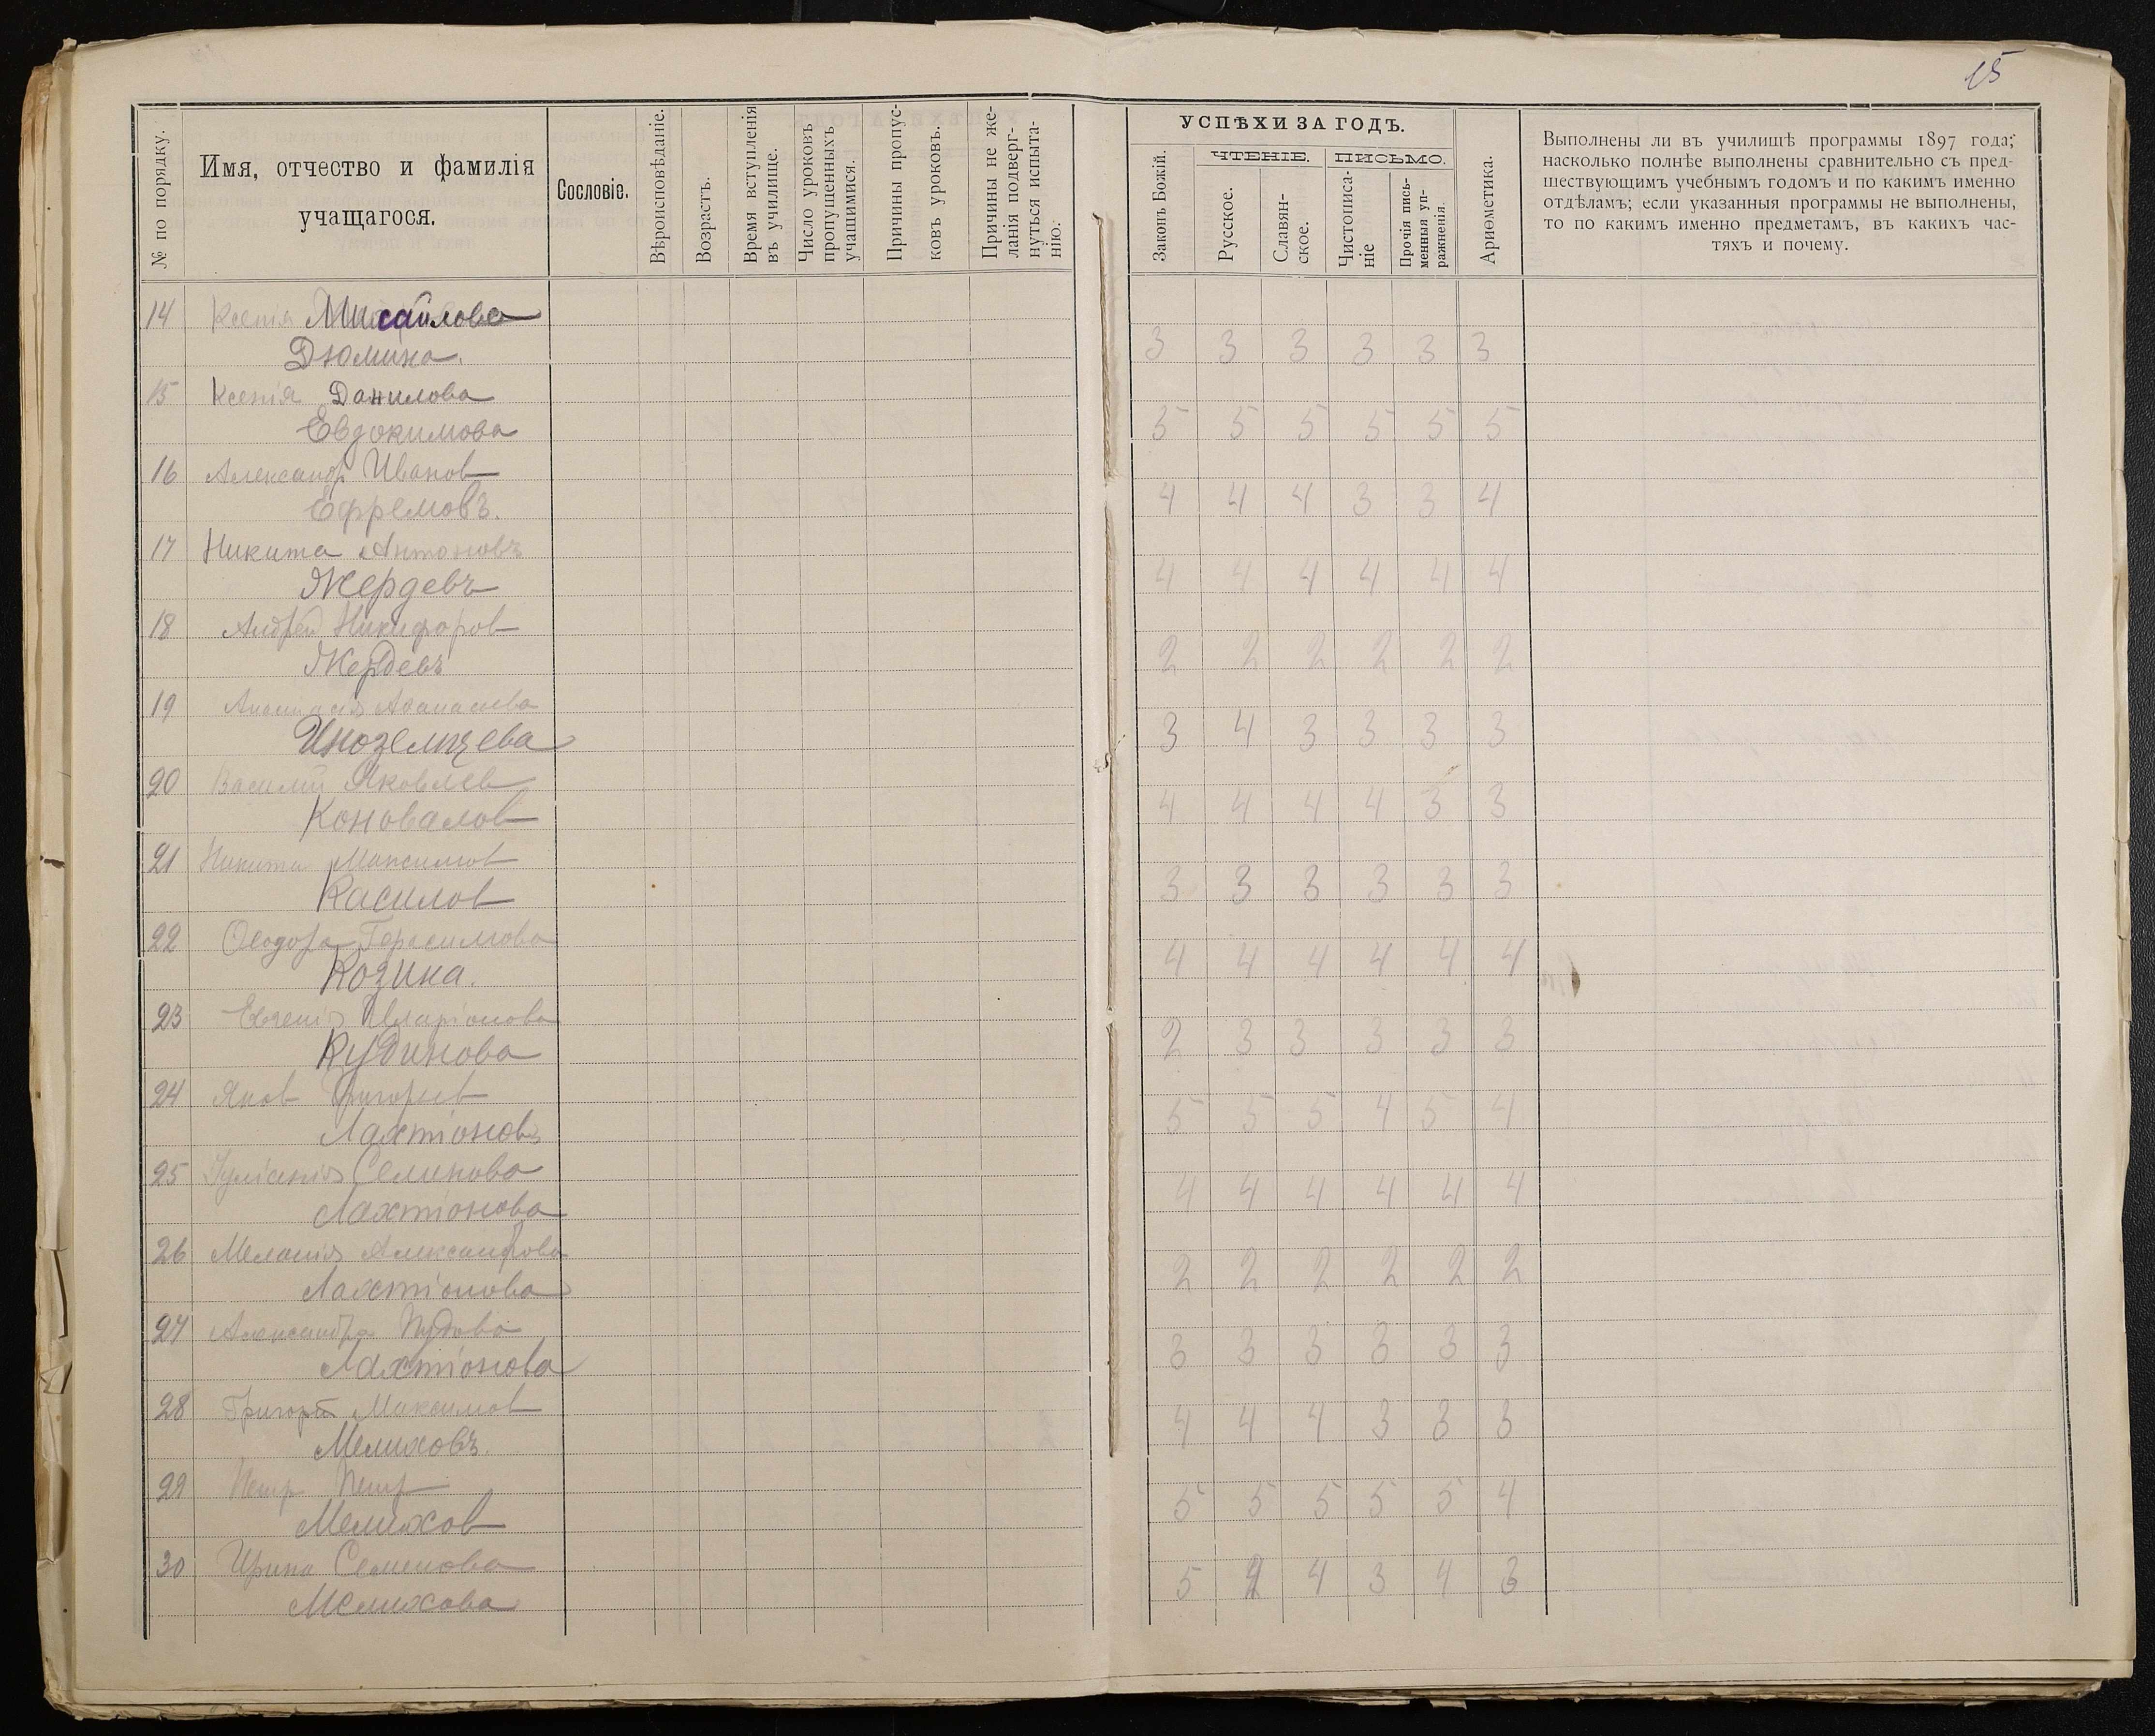 15
№ по порядку.
Имя, отчество и фамилія
учащагося.
Сословіе.
Вѣроисповѣданіе.
Возрастъ.
Время вступленія
въ училище.
Число уроковъ
пропущенныхъ
учащимися.
Причины пропус-
ковъ уроковъ.
Причины не же-
ланія подверг-
нуться испыта-
нію.
УСПѢХИ ЗА ГОДЪ.
Законъ Божій.
ЧТЕНІЕ.
Русское.
Славян-
ское.
ПИСЬМО.
Чистописа-
ніе
Прочія пись-
менныя уп-
ражненія.
Ариѳметика.
Выполнены ли въ училищѣ программы 1897 года;
насколько полнѣе выполнены сравнительно съ пред-
шествующимъ учебнымъ годомъ и по какимъ именно
отдѣламъ; если указанныя программы не выполнены,
то по какимъ именно предметамъ, въ какихъ час-
тяхъ и почему.
14 Ксенія Михайлова
Дюмина. 3 3 3 3 3 3
15 Ксенія Данилова
Евдокимова 5 5 5 5 5 5
16 Александр Иванов
Ефремовъ. 4 4 4 3 3 4
17 Никита Антоновъ
Жердевъ 4 4 4 4 4 4
18 Андрей Никифоров
Жердевъ 2 2 2 2 2 2
19 Анастасія Аѳанасиева
Иноземцева 3 4 3 3 3 3
20 Василий Яковлев
Коновалов 4 4 4 4 3 3
21 Никита Максимов
Касилов 3 3 3 3 3 3
22 Ѳеодора Герасимова
Козина. 4 4 4 4 4 4
23 Евгенія Иларіонова
Кудинова 2 3 3 3 3 3
24 Яков Григорьев
Лахтіоновъ 5 5 5 4 5 4
25 Іуліанія Семенова
Лахтіонова 4 4 4 4 4 4
26 Меланія Александрова
Лахтіонова 2 2 2 2 2 2
27 Александра Пудова
Лахтіонова 3 3 3 3 3 3
28 Григорій Максимов
Мелиховъ. 4 4 4 3 3 3
29 Петр Петр
Мелихов 5 5 5 5 5 4
30 Ирина Семенова
Мелихова 5 4 4 3 4 3